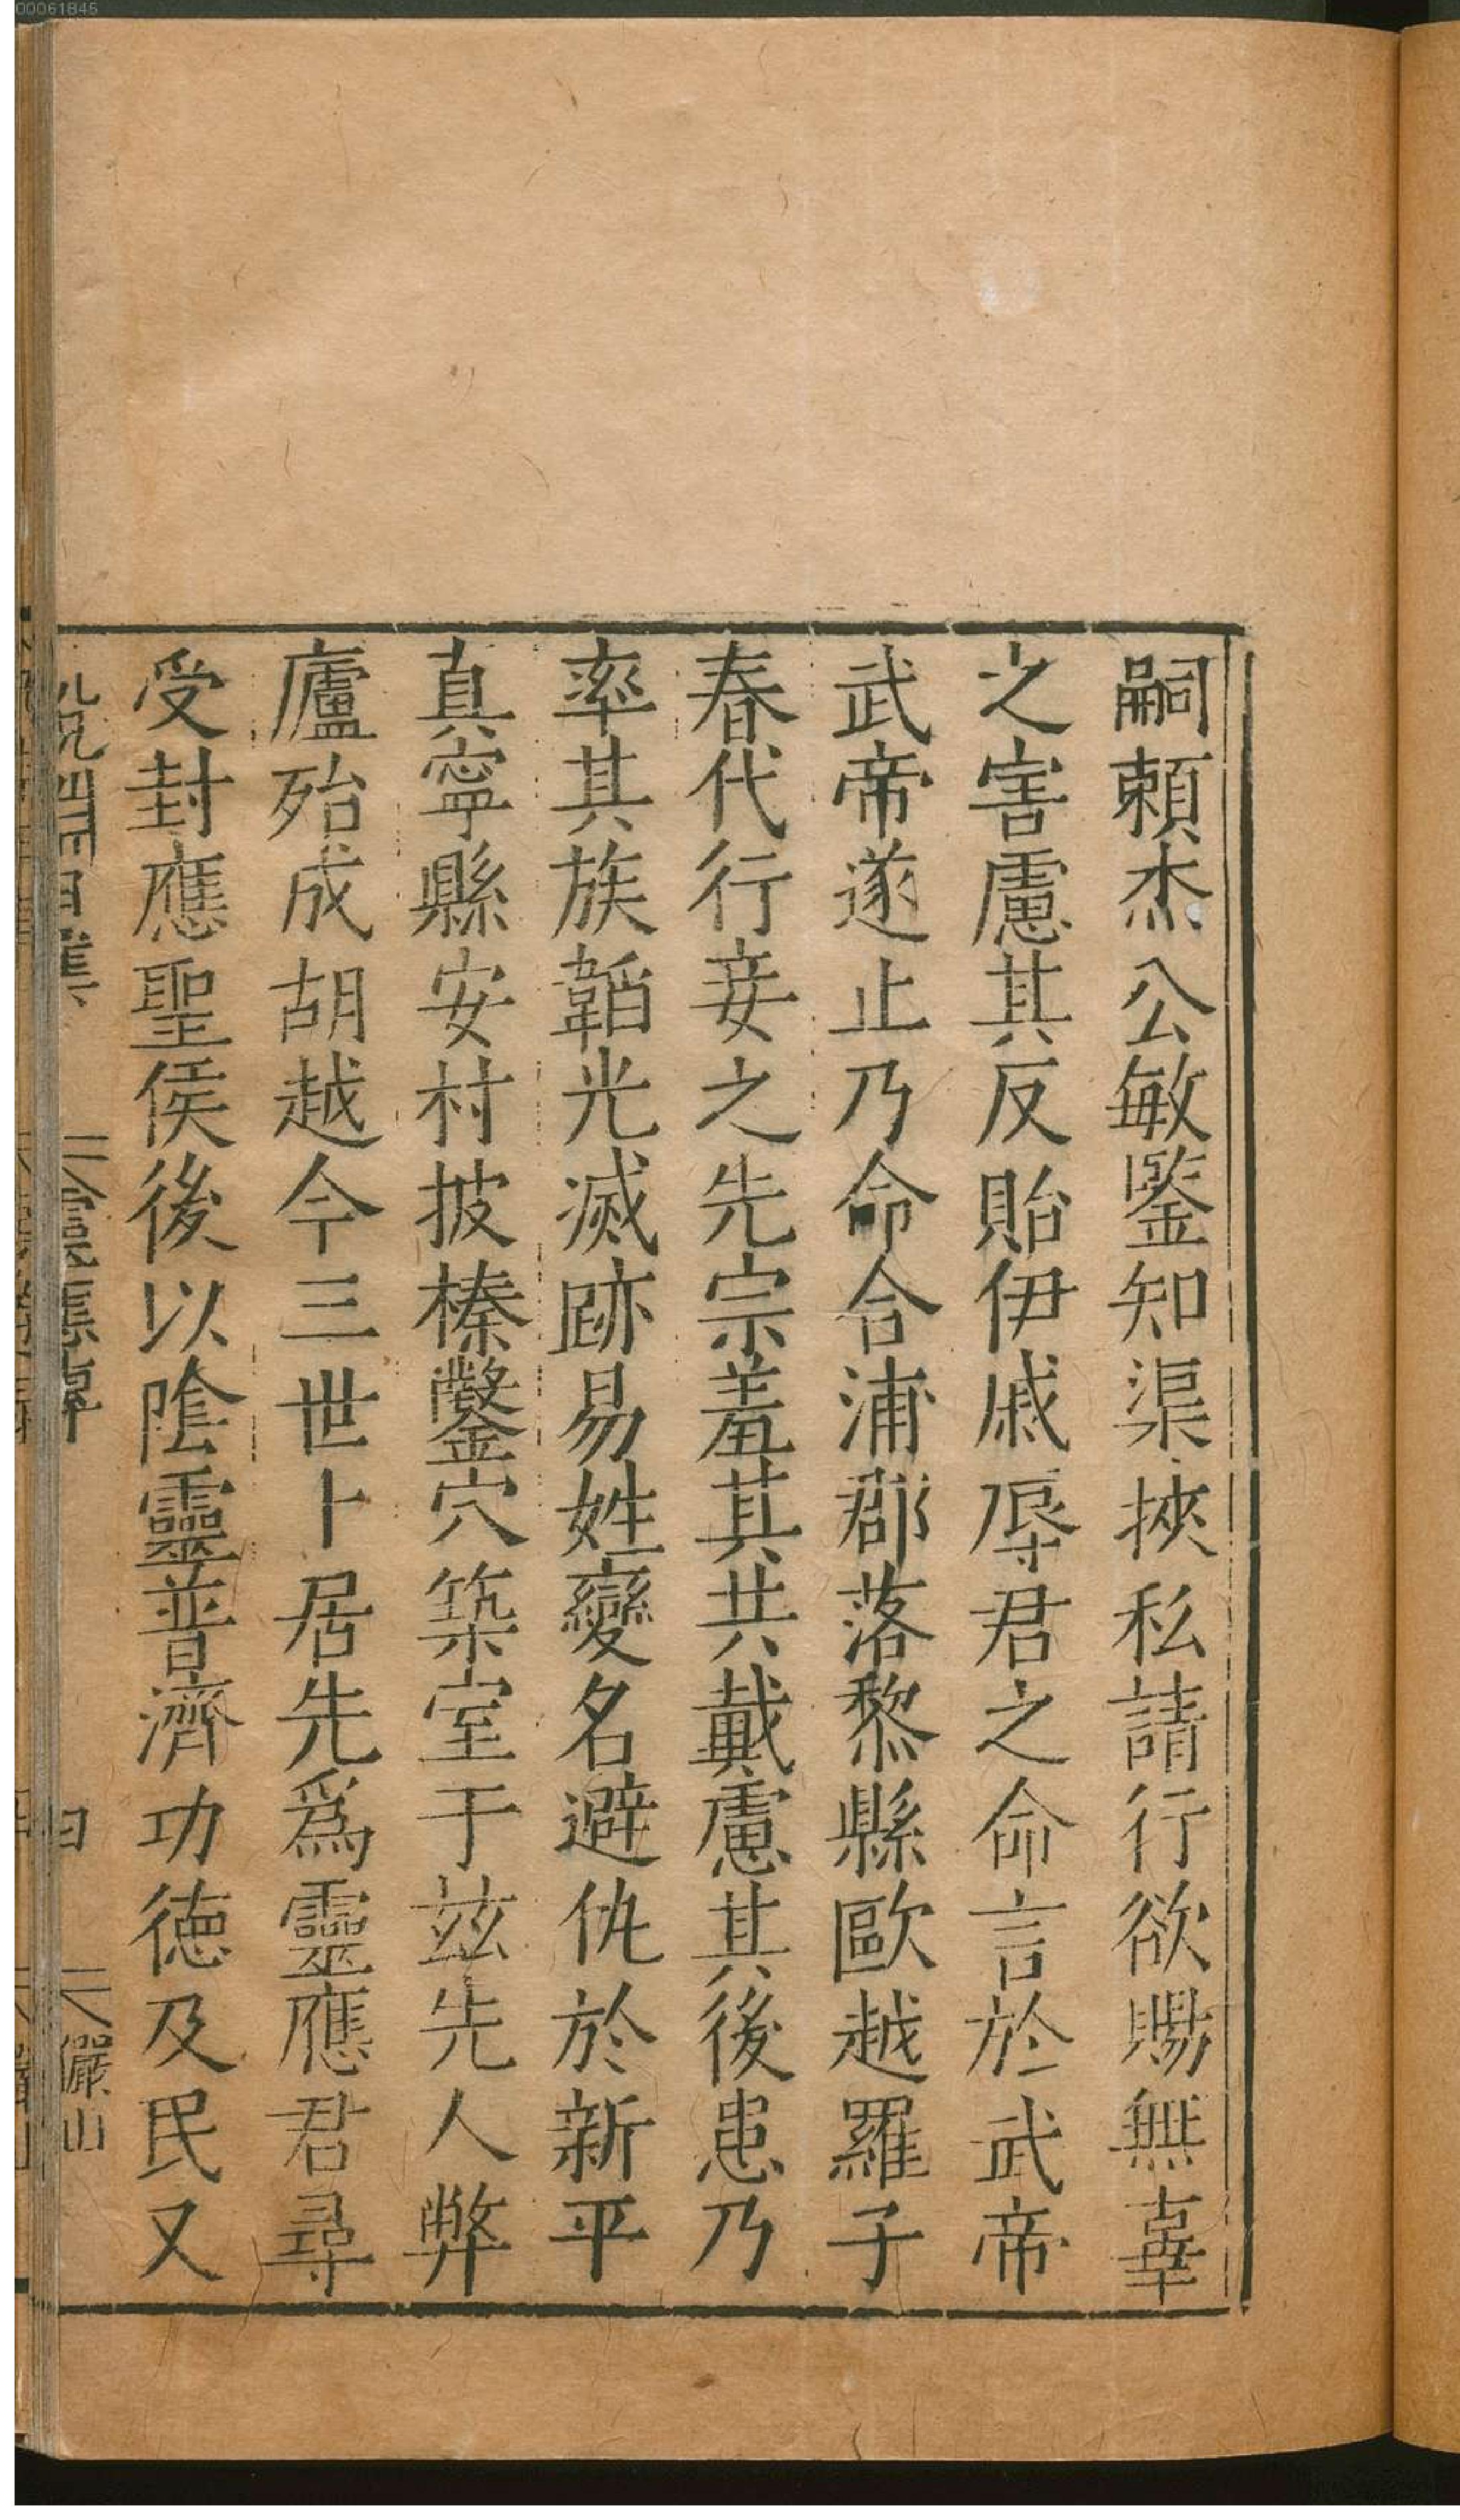 00061845
嗣頼杰公敏鑒知渠挾私請行欲賜無辜
之害慮其反貽伊戚辱君之命言於武帝
武帝遂止乃命合浦郡落黎縣歐越羅子
春代行妾之先宗羞其共戴慮其後患乃
率其族韜光滅跡易姓變名避仇於新平
真寧縣安村披榛鑿穴築室于茲先人弊
廬殆成胡越今三世卜居先爲靈應君尋
受封應聖侯後以陰靈普濟功德及民又
儼山